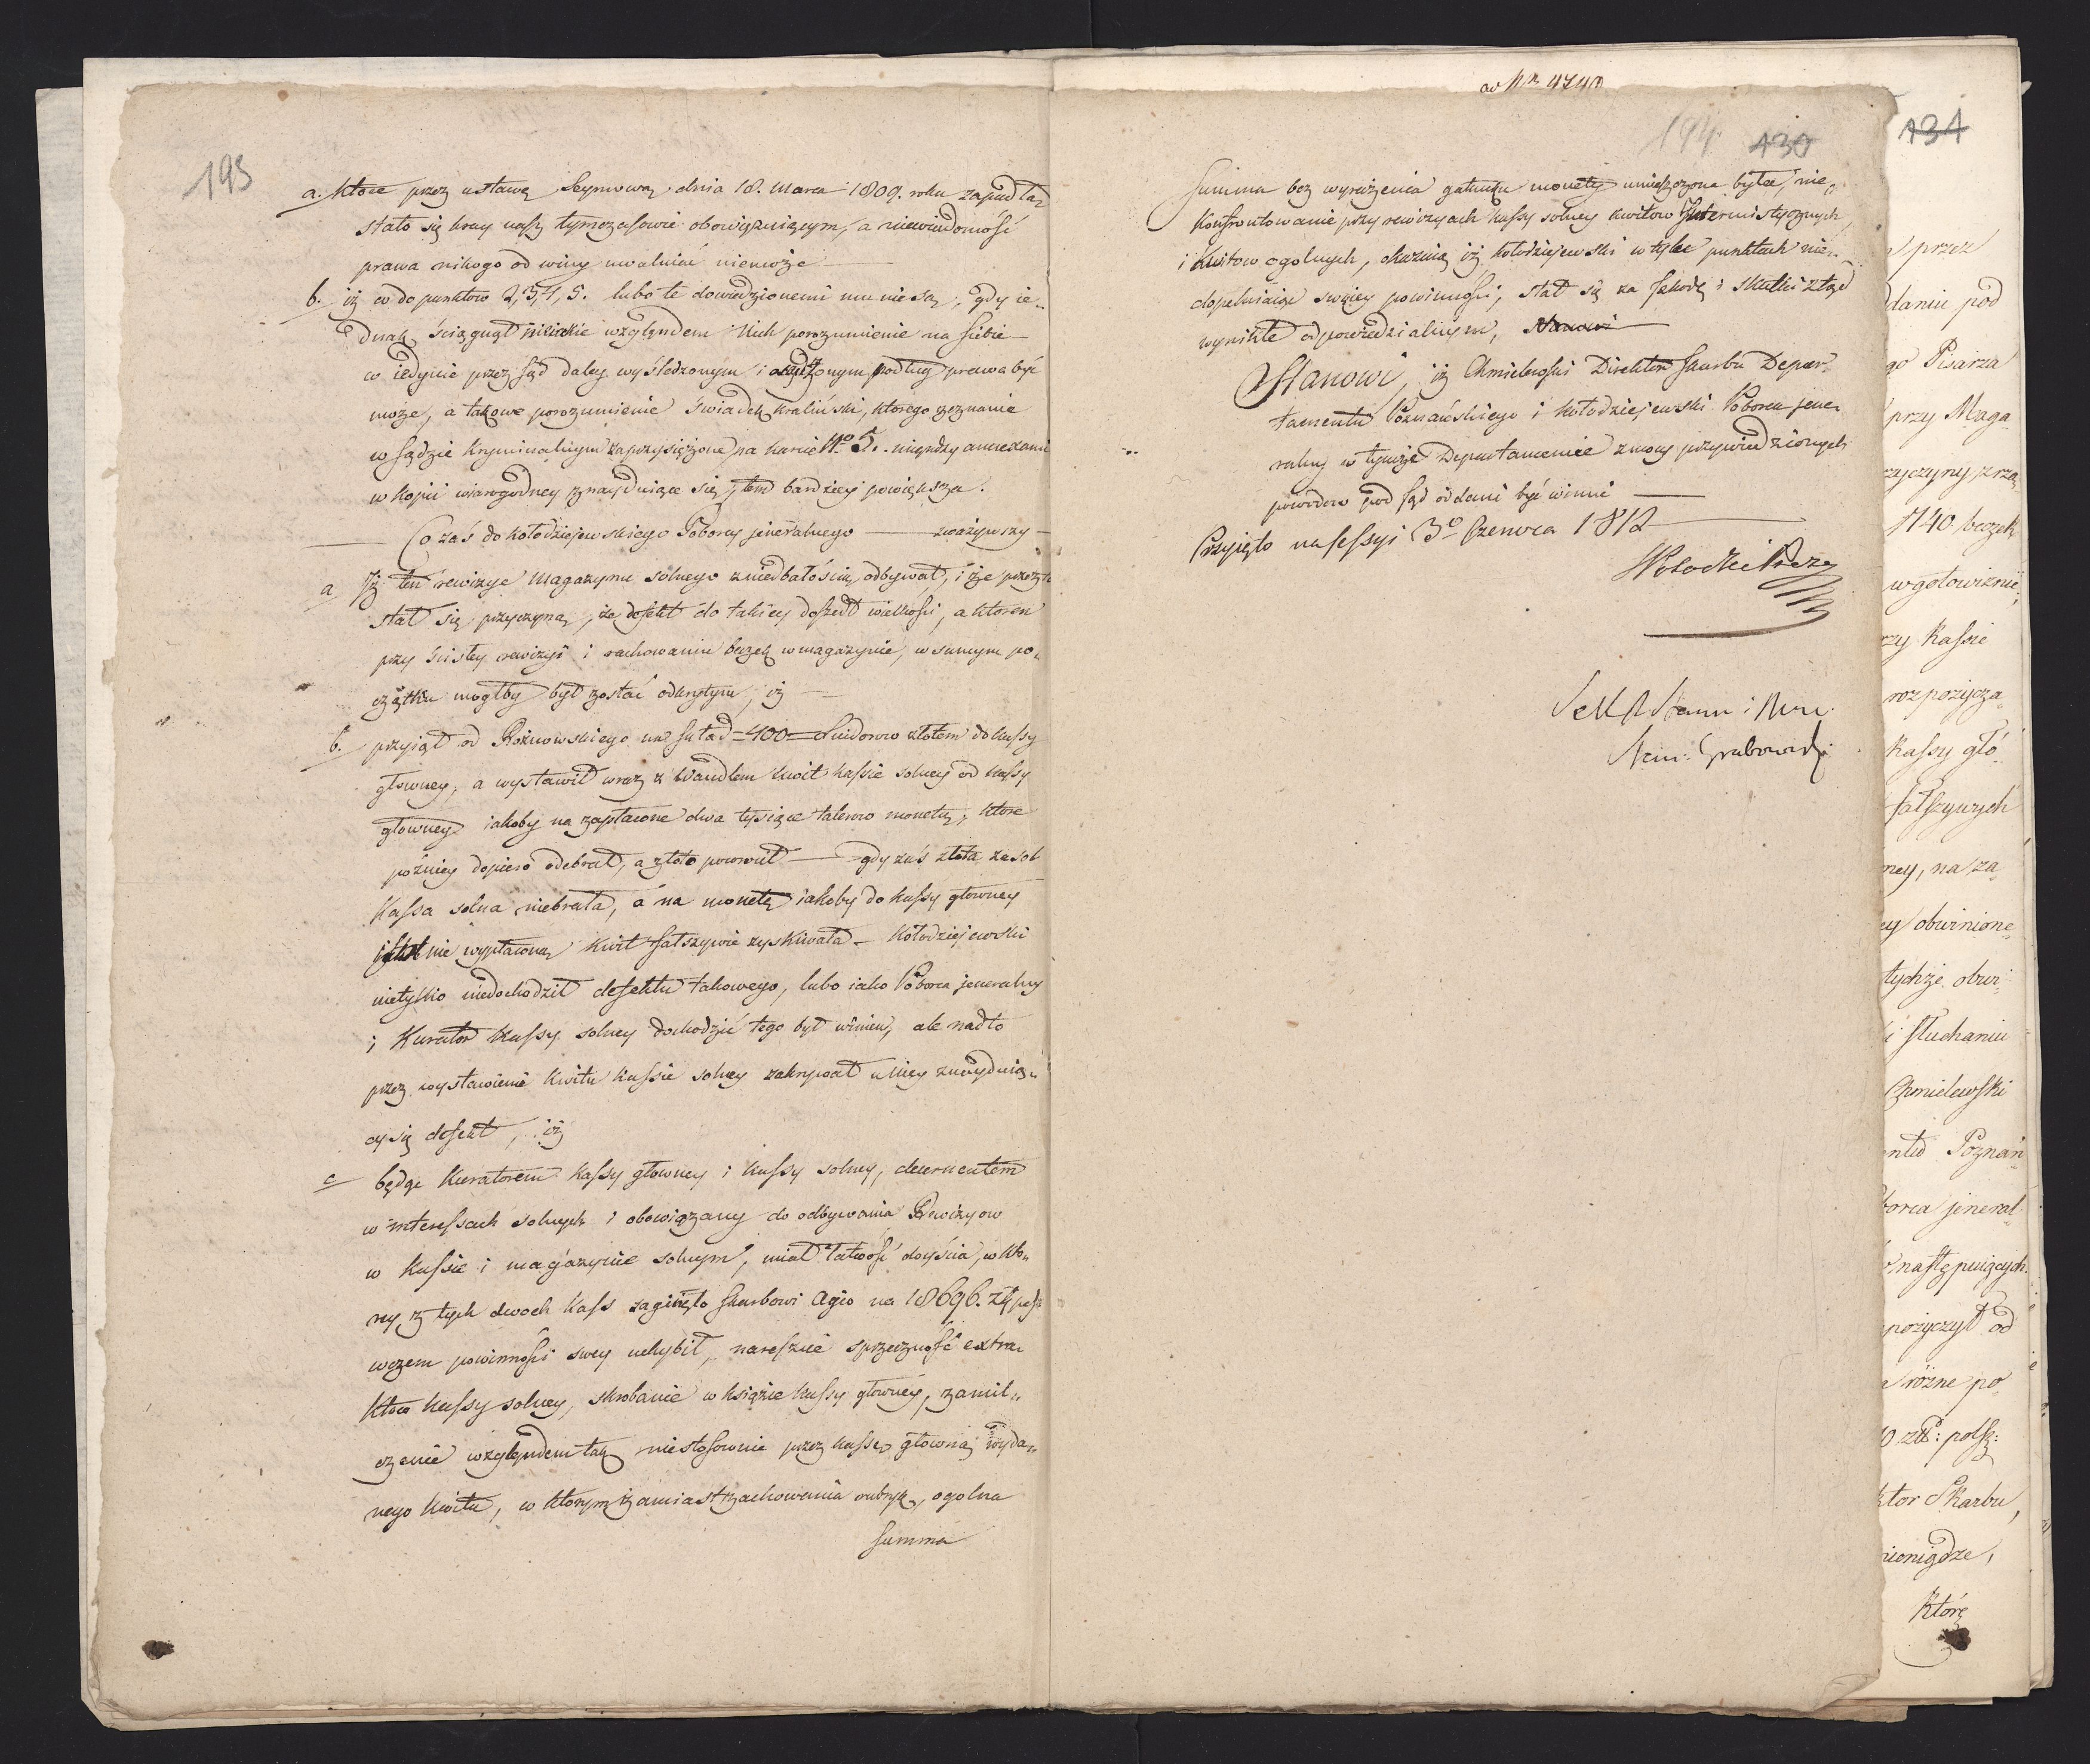 193
a. które przez ustawę Seymową dnia 18. Marca 1809. roku zapadłą
stało się kray nasz tymczasowie obowięzuiącym, a niewiadomość
prawa nikogo od winy uwalniać niemoże
b. iż co do punktow 2, 3, 4, 5. lubo te dowiedzionemi mu nie są, gdy ie„
dnak ściągnął wszelkie względem nich porozumienie na siebie
co iedynie przez Sąd daley wyśledzonym i osądzonym podług prawa być
może, a takowe porozumienie świadek Kraliński, ktorego zeznanie
w Sądzie Kryminalnym zaprzysiężone na karcie No 5. między annexami
w kopii wiarogodney znayduiące się, tem bardziey powiększa.
Co zaś do Kołodziejewskiego Poborcy jeneralnego zważywszy
a Iż ten rewizye Magazynu solnego z niedbałością odbywał, i że przez to
stał się przyczyną, że defekt do takiey doszedł wielkości, a ktoren
przy ścisłey rewizyi i rachowaniu beczek w magazynie, w samym po„
czątku mogłby był zostać odkrytym, iż
b. przyiął od Rożnowskiego na skład =400= Luidorow złotem do kassy
głowney, a wystawił wraz z Wandlem kwit kassie solney od kassy
głowney iakoby na zapłacone dwa tysiące talerow monetą, ktore
poźniey dopiero odebrał, a złoto powrocił — gdy zaś złota za sol
Kassa solna niebrała, a na monetę iakoby do kassy głowney
nie wypłaconą kwit fałszywie zyskiwała — Kołodziejewski
nietylko niedochodził defektu takowego, lubo iako Poborca jeneralny
i Kurator Kassy solney dochodzić tego był winien, ale nadto
przez wystawienie kwitu kassie solney zakrywał w niey znayduią„
cy się defekt, iż
c będąc Kuratorem kassy głowney i kassy solney, decernentem
w interessach solnych i obowiązany do odbywania Rewizyow
w kassie i magazynie solnym, miał łatwość doyścia, w kto„
rey z tych dwoch kass zaginęło skarbowi Agio na 18696. Zł pols
wczem powinności swey uchybił, nareszcie sprzeczność extra„
ktow kassy solney, skrobanie w księdze kassy głowney, zamil„
czenie względem tak niestosownie przez kassę głowną wyda„
nego kwitu, w ktorym zamiast zachowania rubryk, ogolna
summa
ad Nr 4740
194. 130
Summa bez wyrażenia gatunku monety umieszczona była, nie„
Konfrontowanie przy rewizyach kassy solney kwitow Intermistycznych
i Kwitow ogolnych, okazuią iż Kołodziejewski w tylu punktach nie„
dopełniaiąc swoiey powinności, stał się za szkodę i skutki ztąd
wynikłe odpowiedzialnym, Stanowi
Stanowi, iż Chmielewski Direktor Skarbu Depar„
tamentu Poznańskiego i Kołodziejewski Poborca jene„
ralny w tymże Departamencie z mocy przywiedzionych
powodow pod Sąd oddani być winni
Przyięto na Sessyi 3o Czerwca 1812
Grabowski
131
przez
daniu pod
go Pisarza
przy Maga„
zyczyny, z rzą„
1140. beczek
w gotowiźnie,
rzy Kassie
rozpożycza„
kassy głó„
fałszywych
ney, na za„
ey obwinione„
tychże obwi„
i słuchaniu
Chmielewski
ntu Poznań„
orca jeneral„
następuiących.
pożyczył od
różne po„
0 złł: polsk:
ktor Skarbu,
ieniądze,
Którę